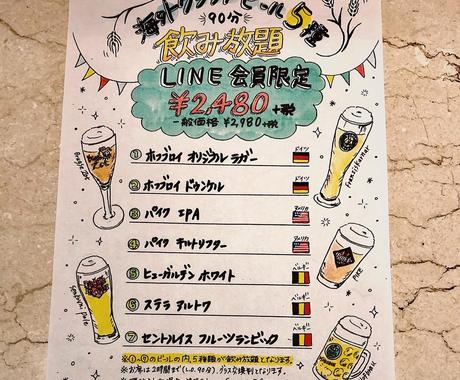 海外ドラフトビール5種
90分
飲み放題
LINE会員限定
¥2,480+税
一般価格 ¥2,980+税
ドイツ
① ホッブロイ オリジナル ラガー
ドイツ
② ホッブロイ ドゥンケル
アメリカ
③ パイク IPA
アメリカ
④ パイク キルトリフター
ベルギー
⑤ ヒューガルデン ホワイト
ベルギー
⑥ ステラ アルトワ
ベルギー
⑦ セントルイス フルーツランビック
Franziskaner
PIKE
※①~⑦のビールの内、5種類が飲み放題となります。
※お席は2時間まで(L.O.90分)、グラス交換制となります。